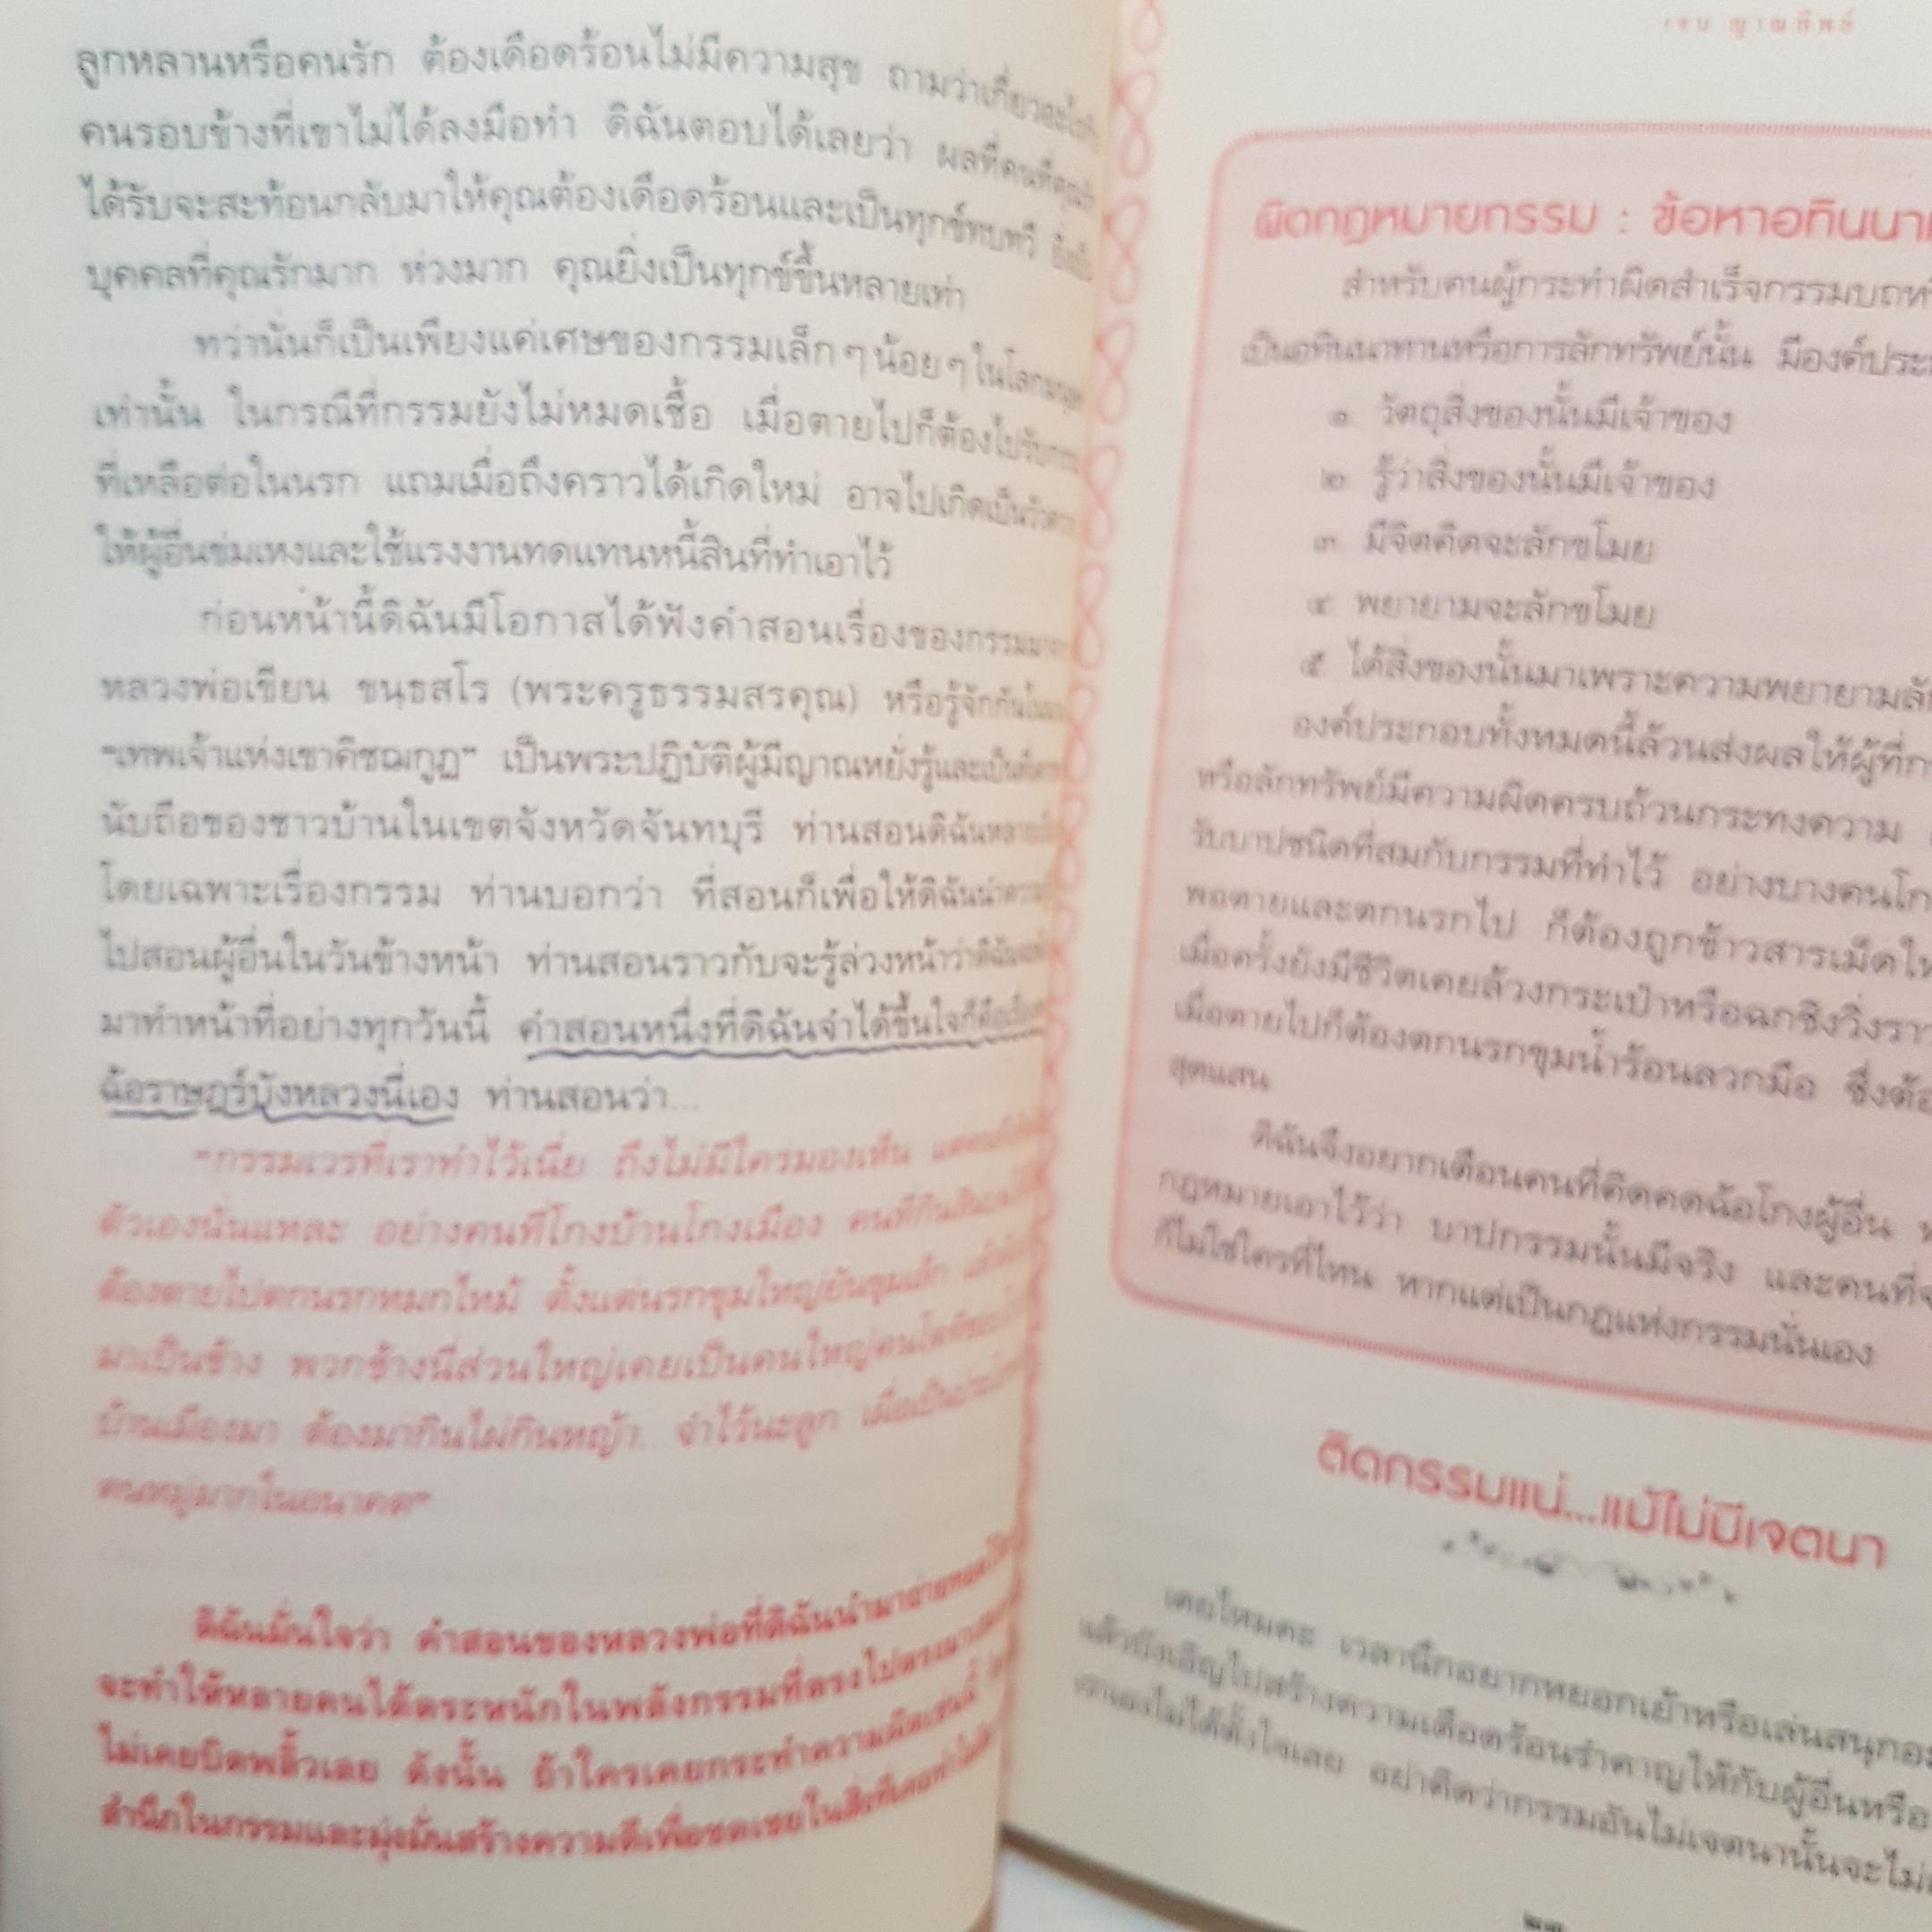 ลูกหลานหรือคนรัก ต้องเดือดร้อนไม่มีความสุข ถามว่าเกี่ยวอะไรกับ
คนรอบข้างที่เขาไม่ได้ลงมือทำ ดิฉันตอบได้เลยว่า ผลที่คนที่คุณรัก
ได้รับจะสะท้อนกลับมาให้คุณต้องเดือดร้อนและเป็นทุกข์ทบทวี
บุคคลที่คุณรักมาก ห่วงมาก คุณยิ่งเป็นทุกข์ขึ้นหลายเท่า
ทว่านั่นก็เป็นเพียงแค่เศษของกรรมเล็กๆ น้อยๆ ในโลกมนุษย์
เท่านั้น ในกรณีที่กรรมยังไม่หมดเชื้อ เมื่อตายไปก็ต้องไปรับกรรม
ที่เหลือต่อในนรก แถมเมื่อถึงคราวได้เกิดใหม่ อาจไปเกิดเป็นวัวควาย
ให้ผู้อื่นข่มเหงและใช้แรงงานทดแทนหนี้สินที่ทำเอาไว้
ก่อนหน้านี้ดิฉันมีโอกาสได้ฟังคำสอนเรื่องของกรรมมาจาก
หลวงพ่อเขียน ขนฺธสโร (พระครูธรรมสรคุณ) หรือรู้จักกันในนาม
"เทพเจ้าแห่งเขาคิชฌกูฏ" เป็นพระปฏิบัติผู้มีญาณหยั่งรู้และเป็นที่เคารพ
นับถือของชาวบ้านในเขตจังหวัดจันทบุรี ท่านสอนดิฉันหลายเรื่อง
โดยเฉพาะเรื่องกรรม ท่านบอกว่า ที่สอนก็เพื่อให้ดิฉันนำความรู้
ไปสอนผู้อื่นในวันข้างหน้า ท่านสอนราวกับจะรู้ล่วงหน้าว่าดิฉันจะต้อง
มาทำหน้าที่อย่างทุกวันนี้ คำสอนหนึ่งที่ดิฉันจำได้ขึ้นใจก็คือเรื่องการ
ฉ้อราษฎร์บังหลวงนี่เอง ท่านสอนว่า...
"กรรมเวรที่เราทำไว้เนี่ย ถึงไม่มีใครมองเห็น
ตัวเองนั่นแหละ อย่างคนที่โกงบ้านโกงเมือง คนที่กินสินบน
ต้องตายไปตกนรกหมกไหม้ ตั้งแต่นรกขุมใหญ่ยันขุมเล็ก
มาเป็นช้าง พวกช้างนี่ส่วนใหญ่เคยเป็นคนใหญ่คนโต
บ้านเมืองมา ต้องมากินไผ่กินหญ้า จำไว้นะลูก
คนหมู่มากในอนาคต"
ดิฉันมั่นใจว่า คำสอนของหลวงพ่อที่ดิฉันนำมาถ่ายทอด
จะทำให้หลายคนได้ตระหนักในพลังกรรมที่ตรงไปตรงมา
ไม่เคยบิดพลิ้วเลย ดังนั้น ถ้าใครเคยกระทำความผิดเช่นนี้
สำนึกในกรรมและมุ่งมั่นสร้างความดีเพื่อชดเชยในสิ่งที่เคยทำ
เจน ญาณทิพย์
ผิดกฎหมายกรรม : ข้อหาอทินนา
สำหรับคนผู้กระทำผิดสำเร็จกรรมบถ
เป็นอทินนาทานหรือการลักทรัพย์นั้น มีองค์ประ
๑ วัตถุสิ่งของนั้นมีเจ้าของ
๒ รู้ว่าสิ่งของนั้นมีเจ้าของ
๓ มีจิตคิดจะลักขโมย
๔ พยายามจะลักขโมย
๕ ได้สิ่งของนั้นมาเพราะความพยายามลั
องค์ประกอบทั้งหมดนี้ล้วนส่งผลให้ผู้ที่ก
หรือลักทรัพย์มีความผิดครบถ้วนกระทงความ
รับบาปชนิดที่สมกับกรรมที่ทำไว้ อย่างบางคนโก
พอตายและตกนรกไป ก็ต้องถูกข้าวสารเม็ดให
เมื่อครั้งยังมีชีวิตเคยล้วงกระเป๋าหรือฉกชิงวิ่งรา
เมื่อตายไปก็ต้องตกนรกขุมน้ำร้อนลวกมือ ซึ่งต้อ
สุดแสน
ดิฉันจึงอยากเตือนคนที่คิดคดฉ้อโกงผู้อื่น
กฎหมายเอาไว้ว่า บาปกรรมนั้นมีจริง และคนที่จ
ก็ไม่ใช่ใครที่ไหน หากแต่เป็นกฎแห่งกรรมนั่นเอง
ติดกรรมแน่...แม้ไม่มีเจตนา
เคยไหมคะ เวลานึกอยากหยอกเย้าหรือเล่นสนุกอะ
แล้วบังเอิญไปสร้างความเดือดร้อนรำคาญให้กับผู้อื่นหรือ
เราเองไม่ได้ตั้งใจเลย อย่าคิดว่ากรรมอันไม่เจตนานั้นจะไม่
๒๓